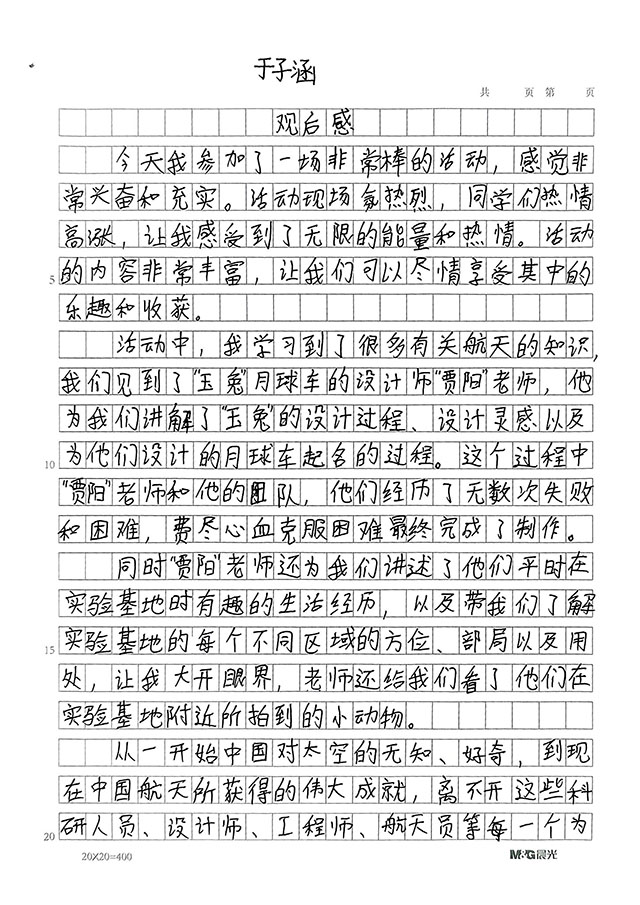 于子涵
共 页 第 页
观后感
今天我参加了一场非常棒的活动，感觉非
常兴奋和充实。活动现场氛热烈，同学们热情
高涨，让我感受到了无限的能量和热情。活动
5 的内容非常丰富，让我们可以尽情享受其中的
乐趣和收获。
活动中，我学习到了很多有关航天的知识，
我们见到了“玉兔”月球车的设计师“贾阳”老师，他
为我们讲解了“玉兔”的设计过程、设计灵感以及
10 为他们设计的月球车起名的过程。这个过程中
“贾阳”老师和他的团队，他们经历了无数次失败
和困难，费尽心血克服困难最终完成了制作。
同时“贾阳”老师还为我们讲述了他们平时在
实验基地时有趣的生活经历，以及带我们了解
15 实验基地的每个不同区域的方位、部局以及用
处，让我大开眼界，老师还给我们看了他们在
实验基地附近所拍到的小动物。
从一开始中国对太空的无知、好奇，到现
在中国航天所获得的伟大成就，离不开这些科
20 研人员、设计师、工程师、航天员等每一个为
20X20=400 M&G晨光